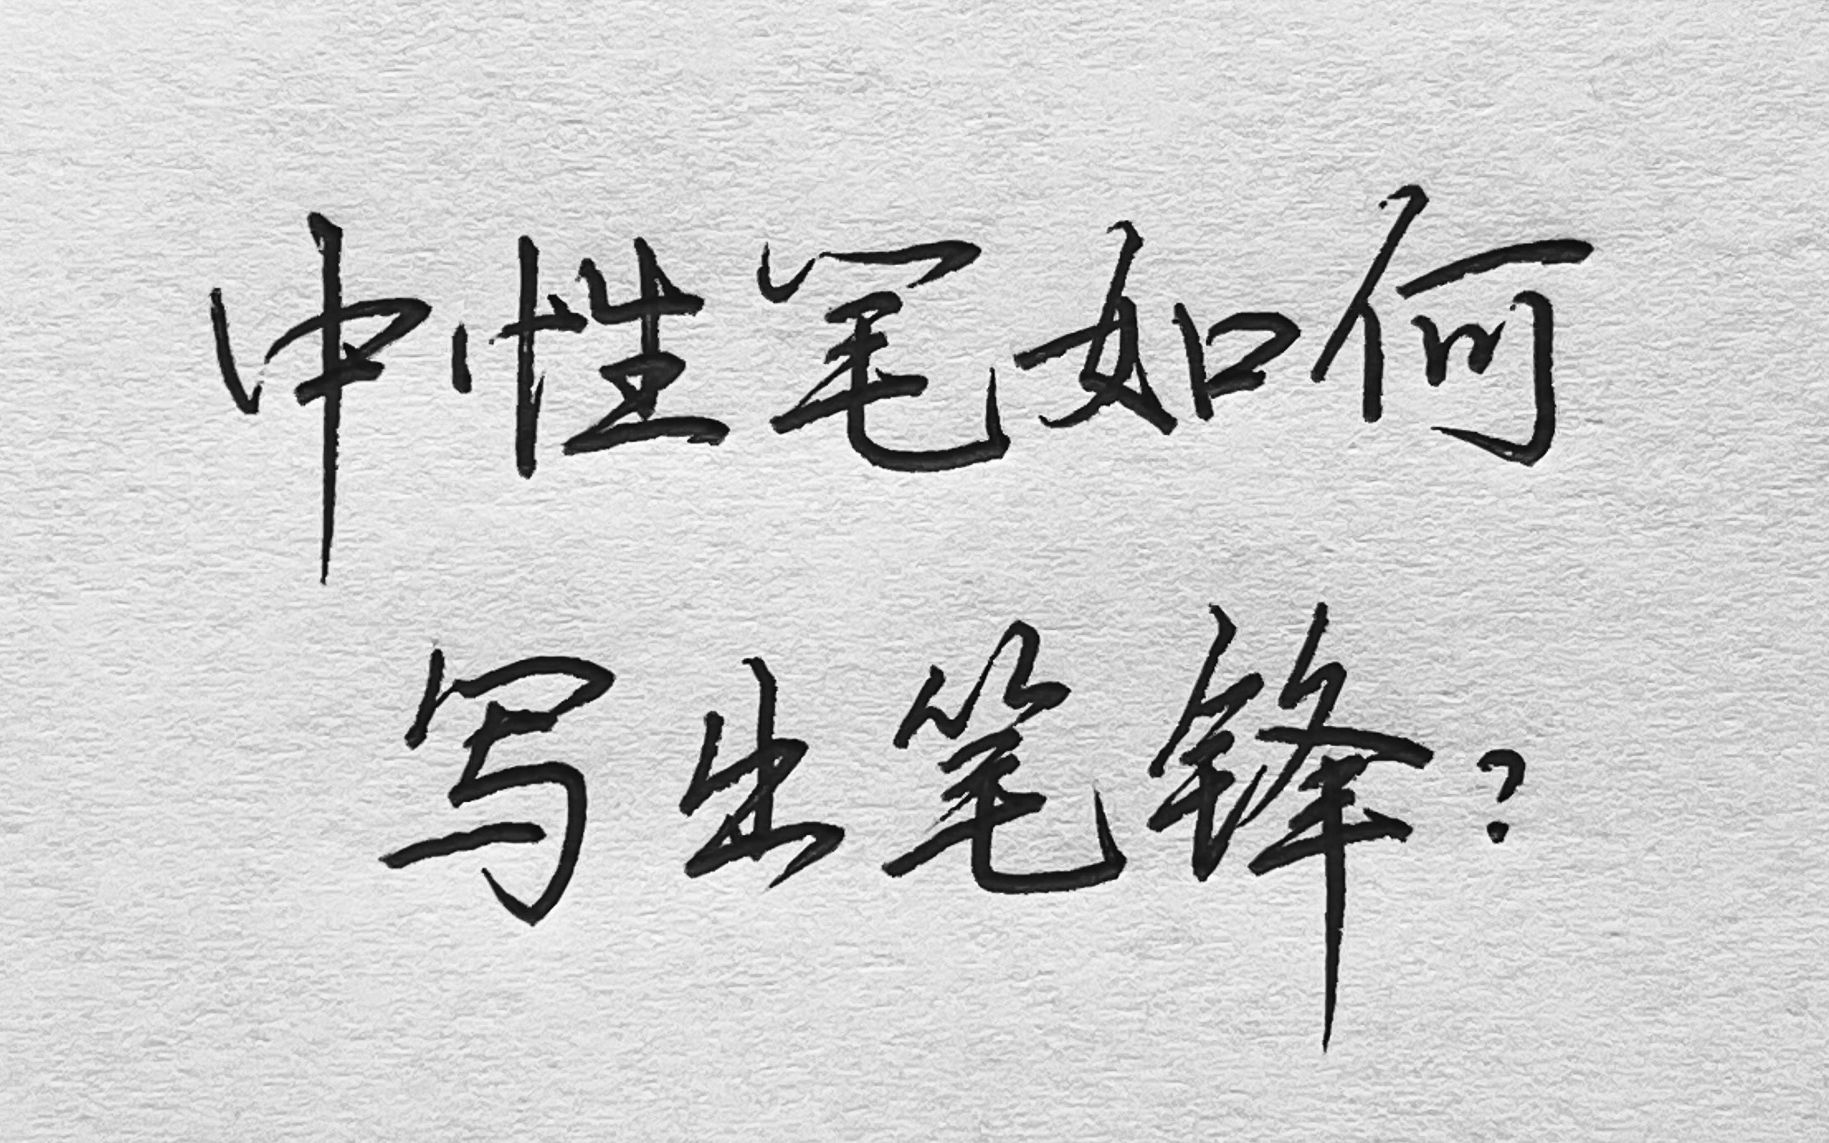 中性笔如何
写出笔锋？